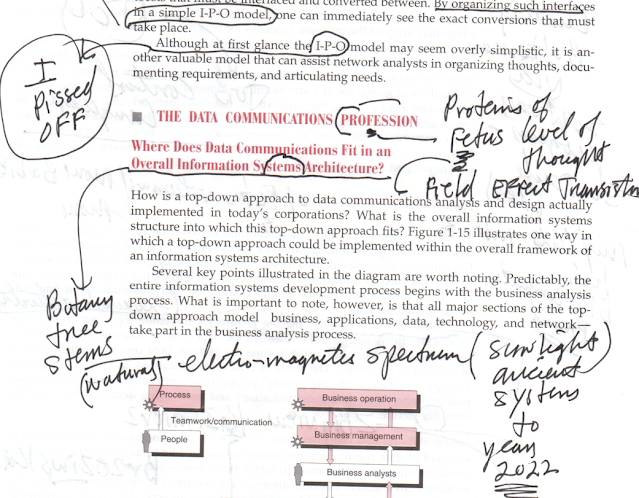 faced that must be interfaced and converted between. By organizing such interfaces
in a simple I-P-O model, one can immediately see the exact conversions that must
take place.
Although at first glance the I-P-O model may seem overly simplistic, it is an-
other valuable model that can assist network analysts in organizing thoughts, docu-
menting requirements, and articulating needs.
I
Pissed
OFF
THE DATA COMMUNICATIONS PROFESSION
Proteins of
Fetus level of
thought
Where Does Data Communications Fit in an
Overall Information Systems Architecture?
Field Effect Transistor
How is a top-down approach to data communications analysis and design actually
implemented in today's corporations? What is the overall information systems
structure into which this top-down approach fits? Figure 1-15 illustrates one way in
which a top-down approach could be implemented within the overall framework of
an information systems architecture.
Several key points illustrated in the diagram are worth noting. Predictably, the
entire information systems development process begins with the business analysis
process. What is important to note, however, is that all major sections of the top-
down approach model business, applications, data, technology, and network—
take part in the business analysis process.
Botany
tree
stems
(natural)
electro-magnetic spectrum (sunlight)
ancient
systems
to
year
2022
Process
Teamwork/communication
People
Business operation
Business management
Business analysts